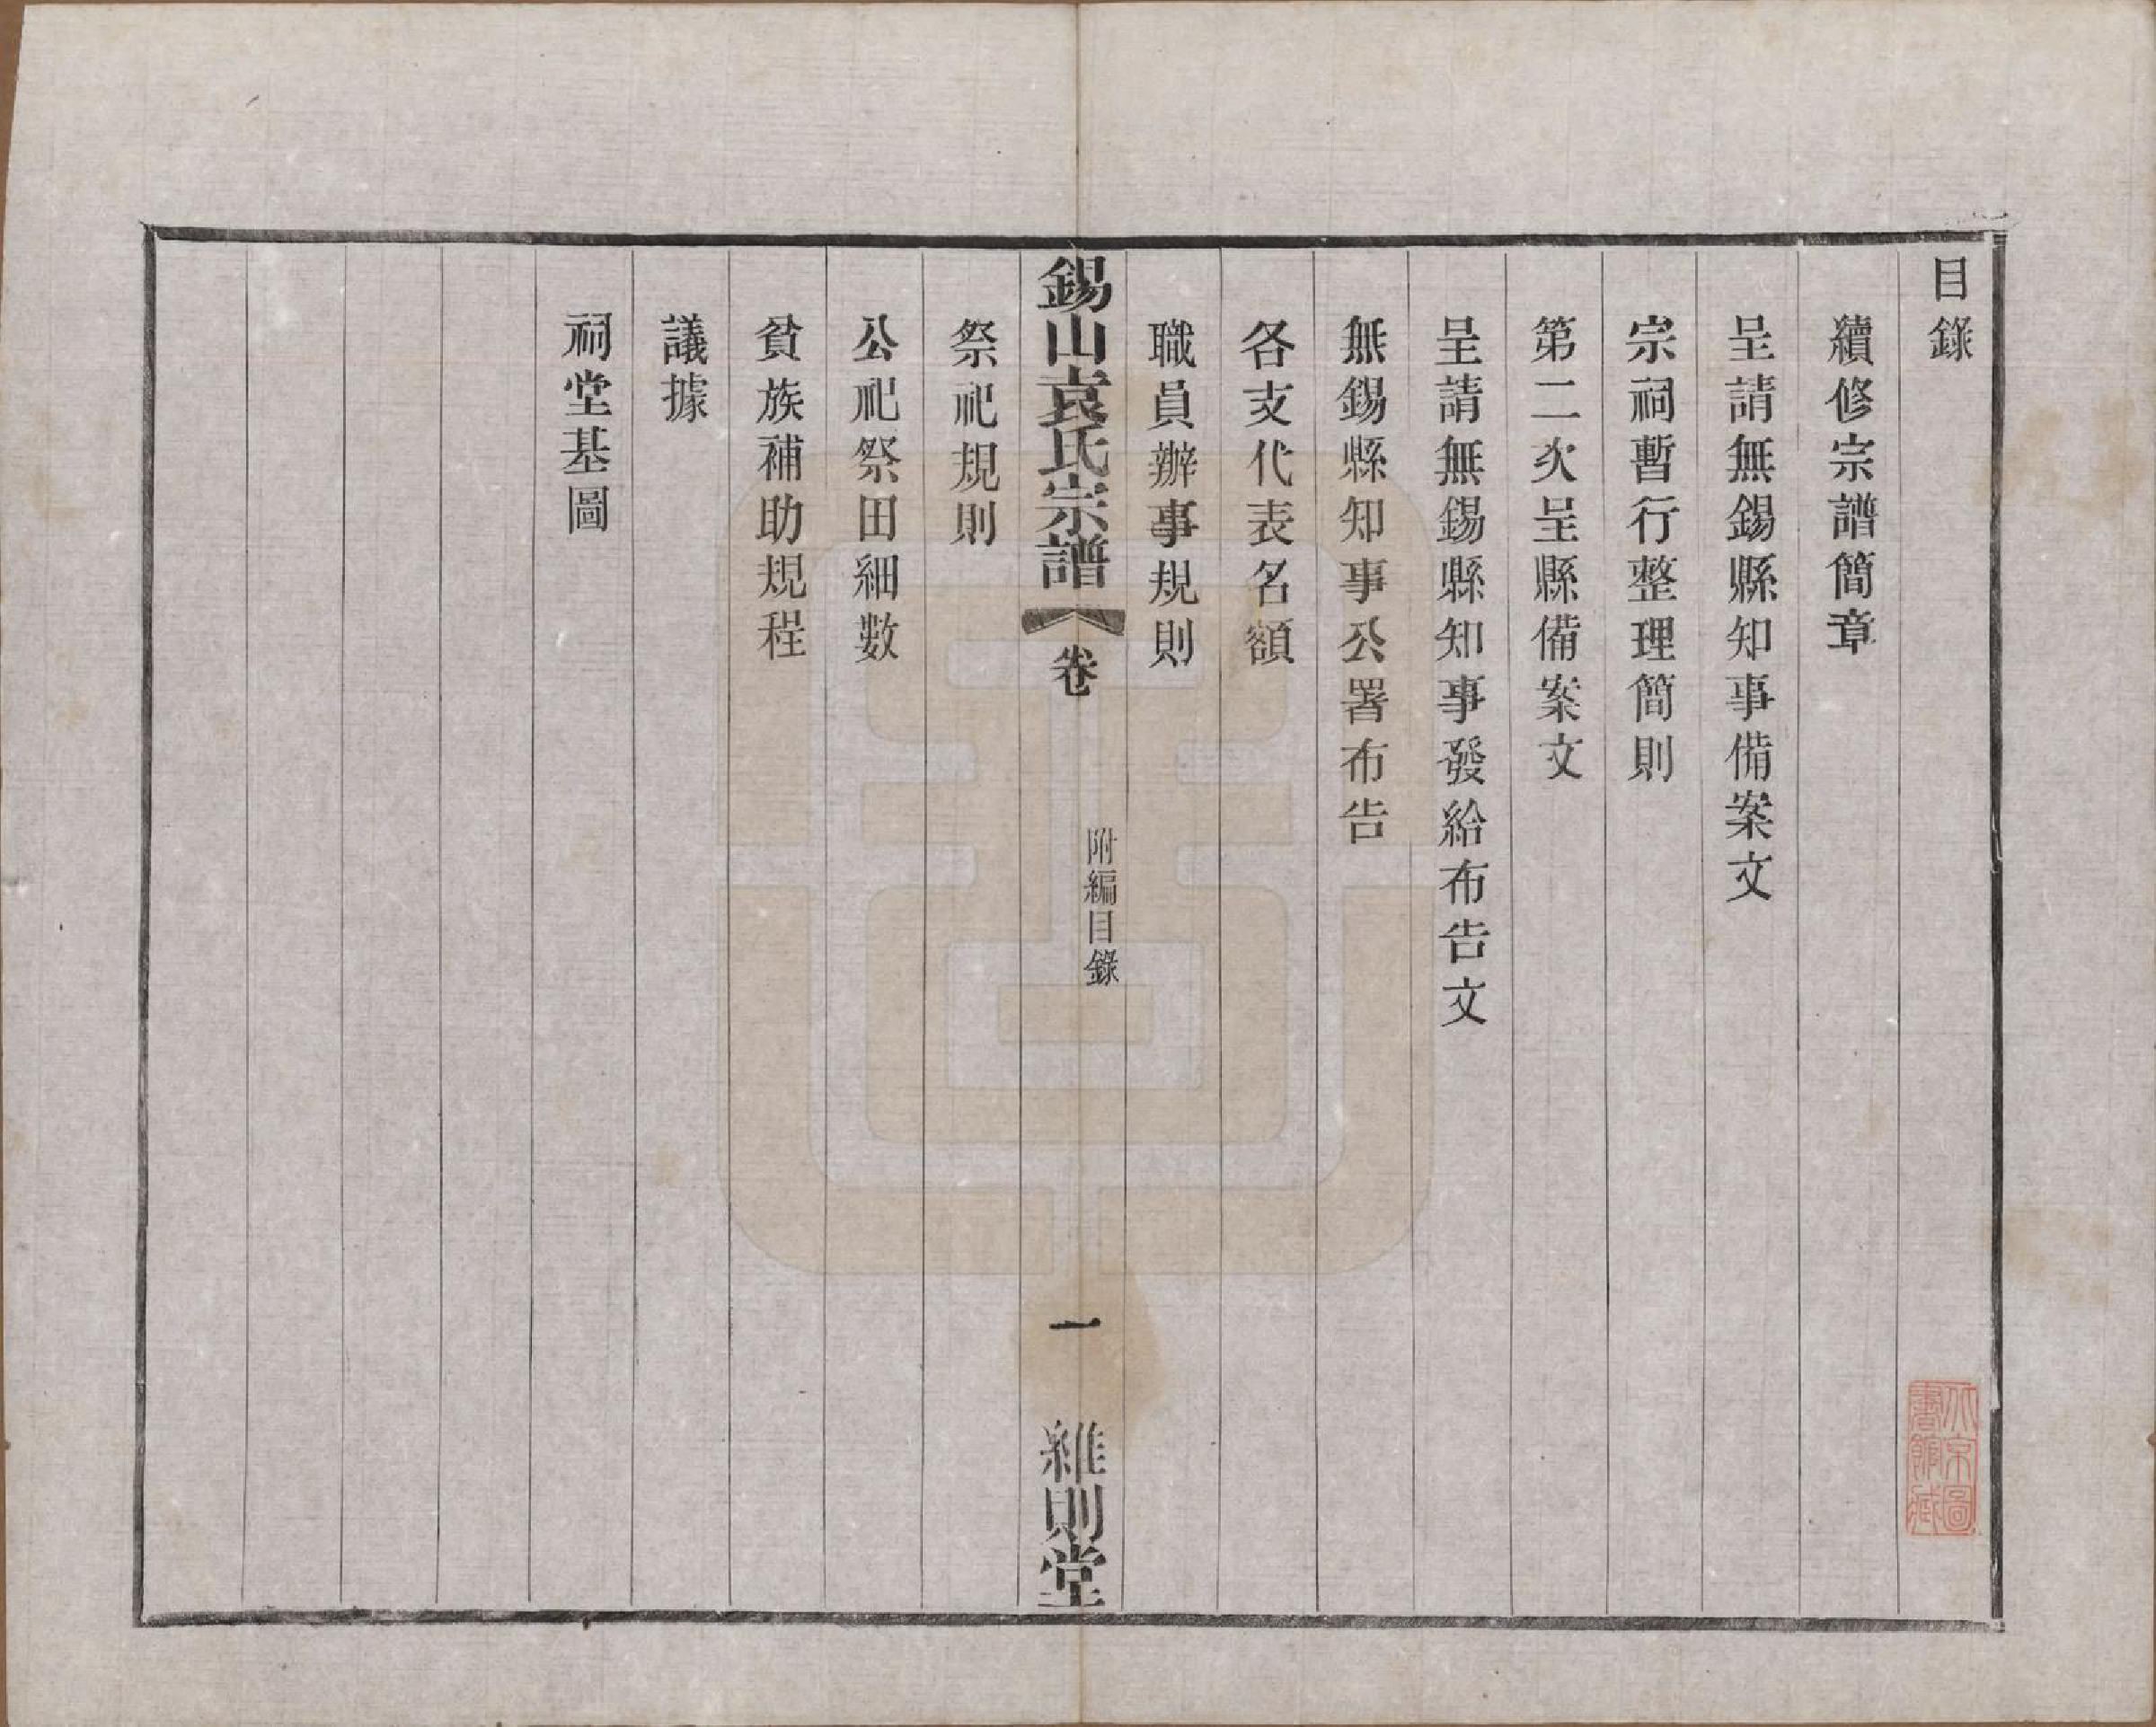 目錄
續修宗譜簡章
呈請無錫縣知事備案文
宗祠暫行整理簡則
第二次呈縣備案文
呈請無錫縣知事發給布告文
無錫縣知事公署布告
各支代表名額
職員辦事規則
錫山袁氏宗譜
卷
附編目錄
一
維則堂
祭祀規則
公祀祭田細數
貧族補助規程
議據
祠堂基圖
北京圖
書館藏